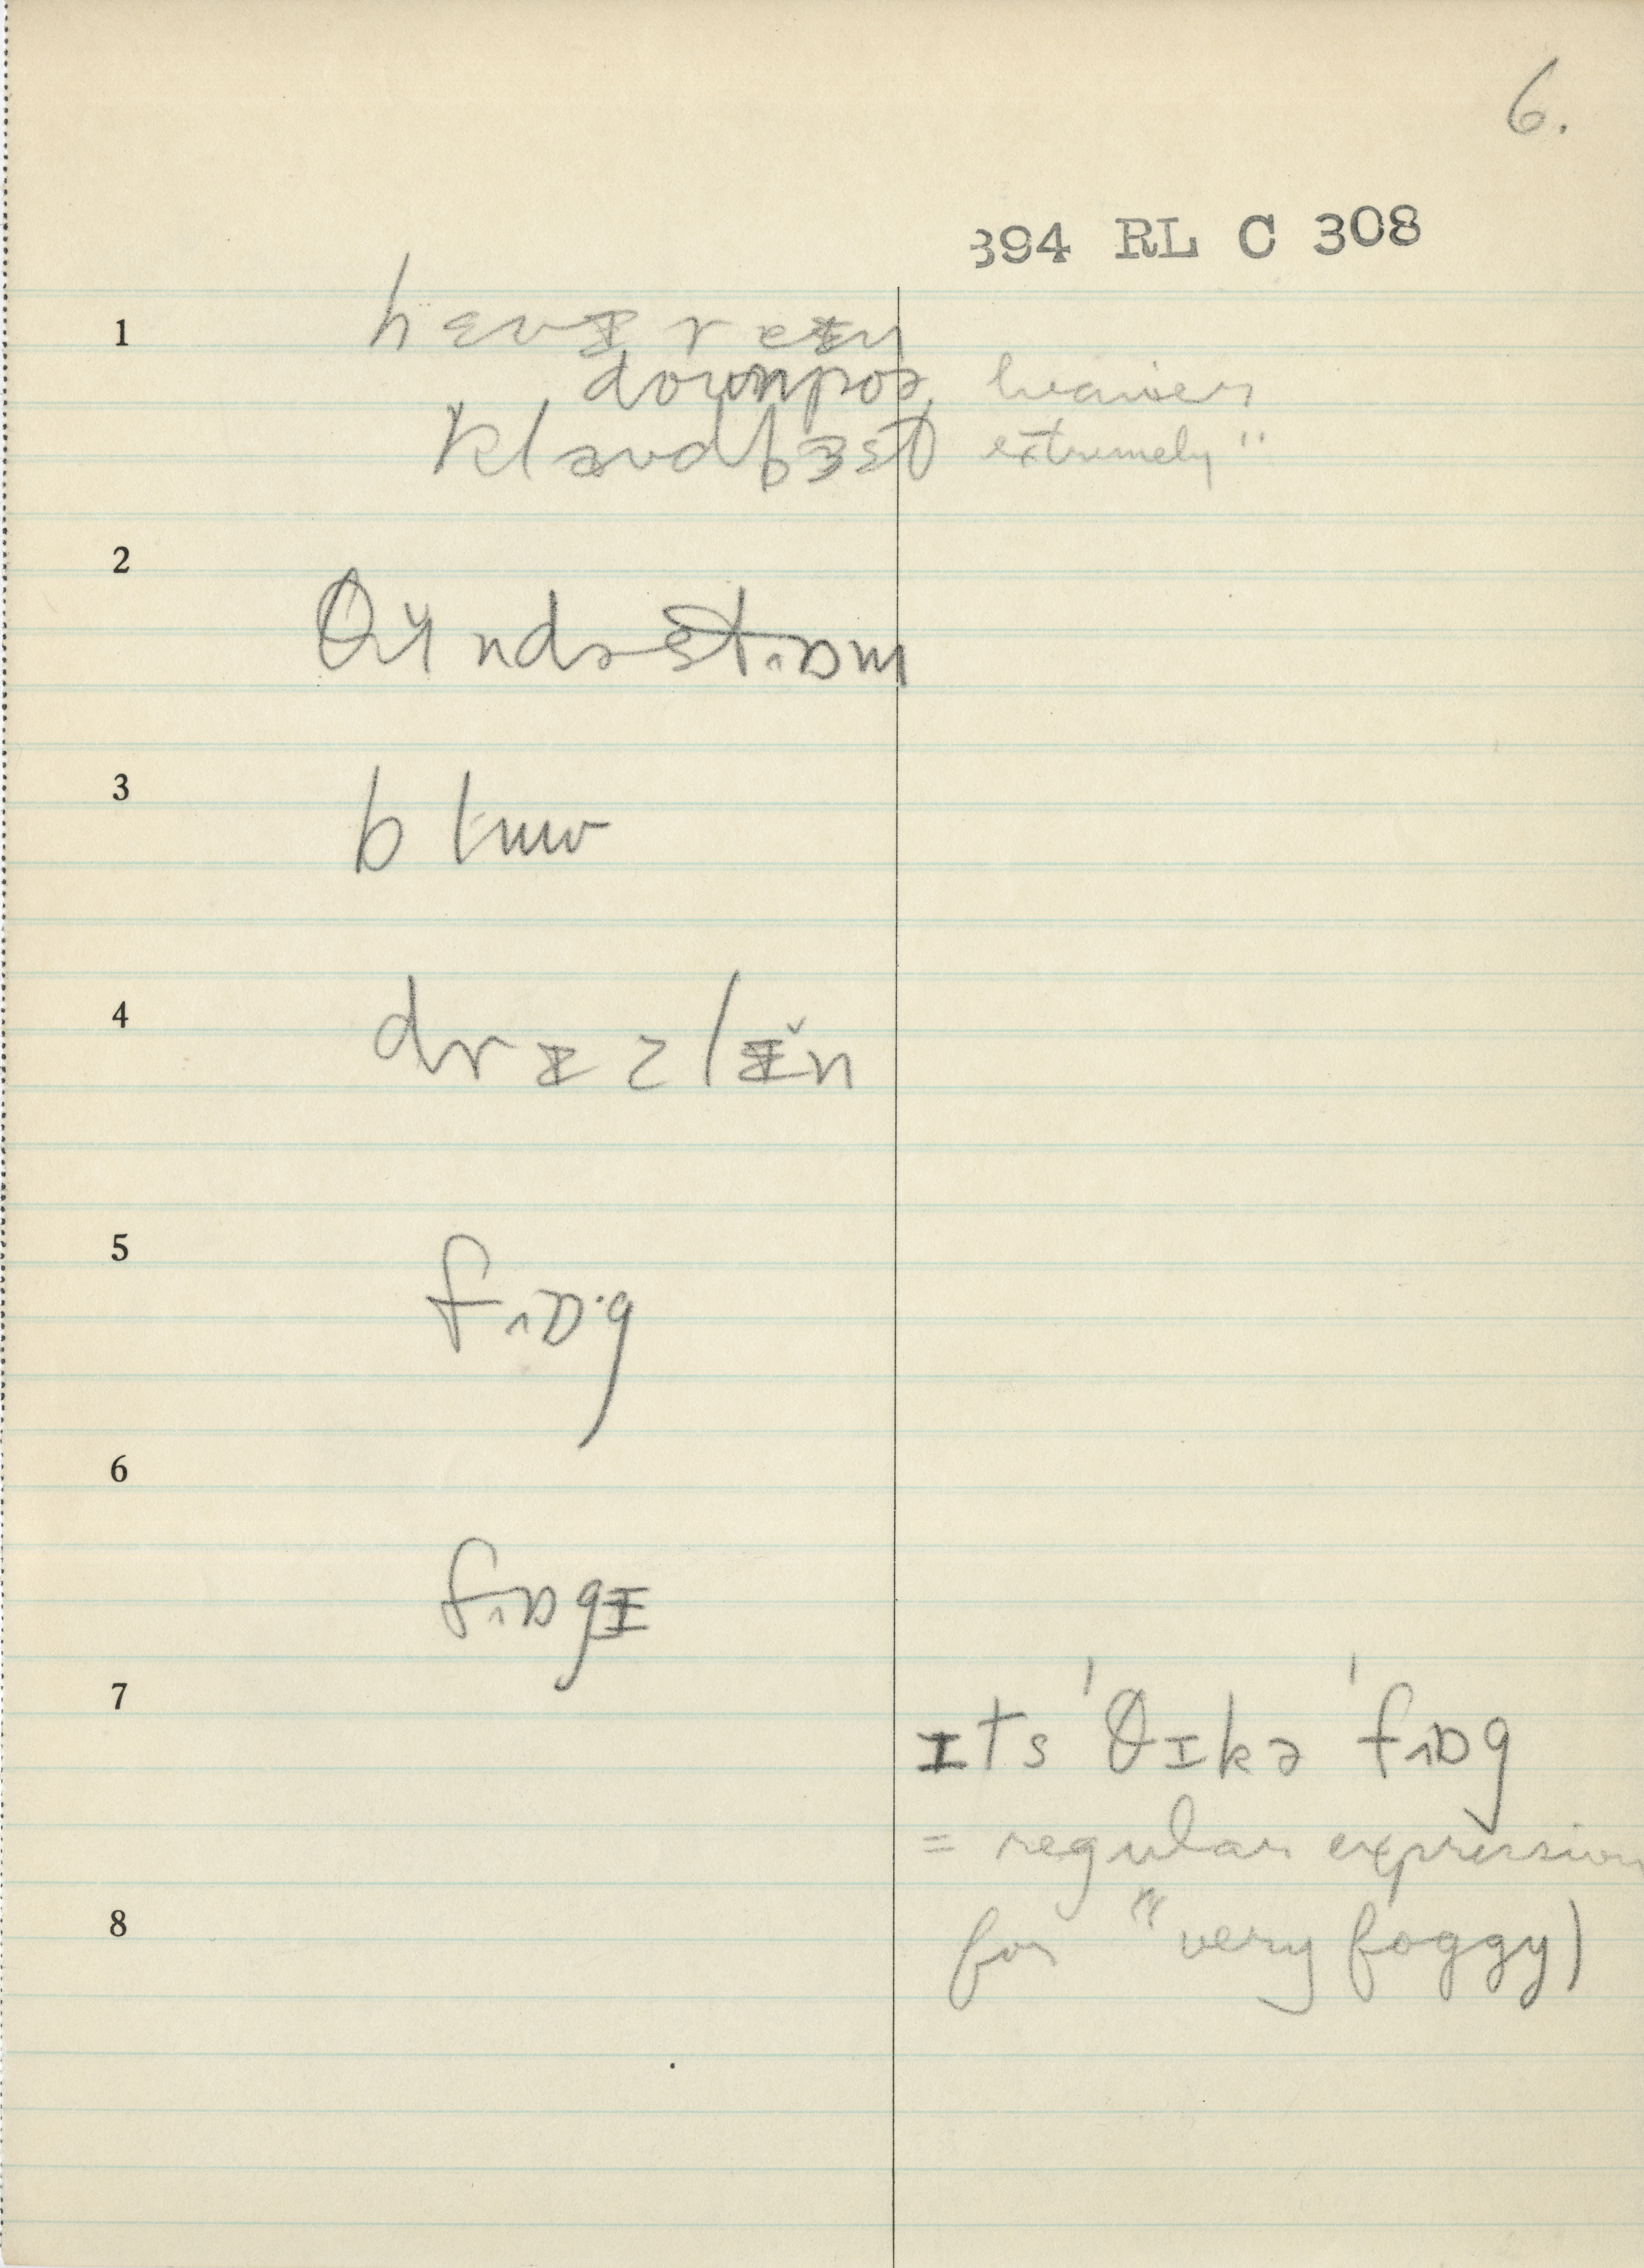 6.
394 RL C 308
1 hɛvɪ reɪn
downpoə heavier
klaʊdbɜst extremely "
2 θʌndəstɒm
3
4 drɪzlɪ̆n
5 fɒˑg
6 fɒgɪ
7 ɪts ˈθɪkə ˈfɒg
= regular expression
8 for " very foggy)